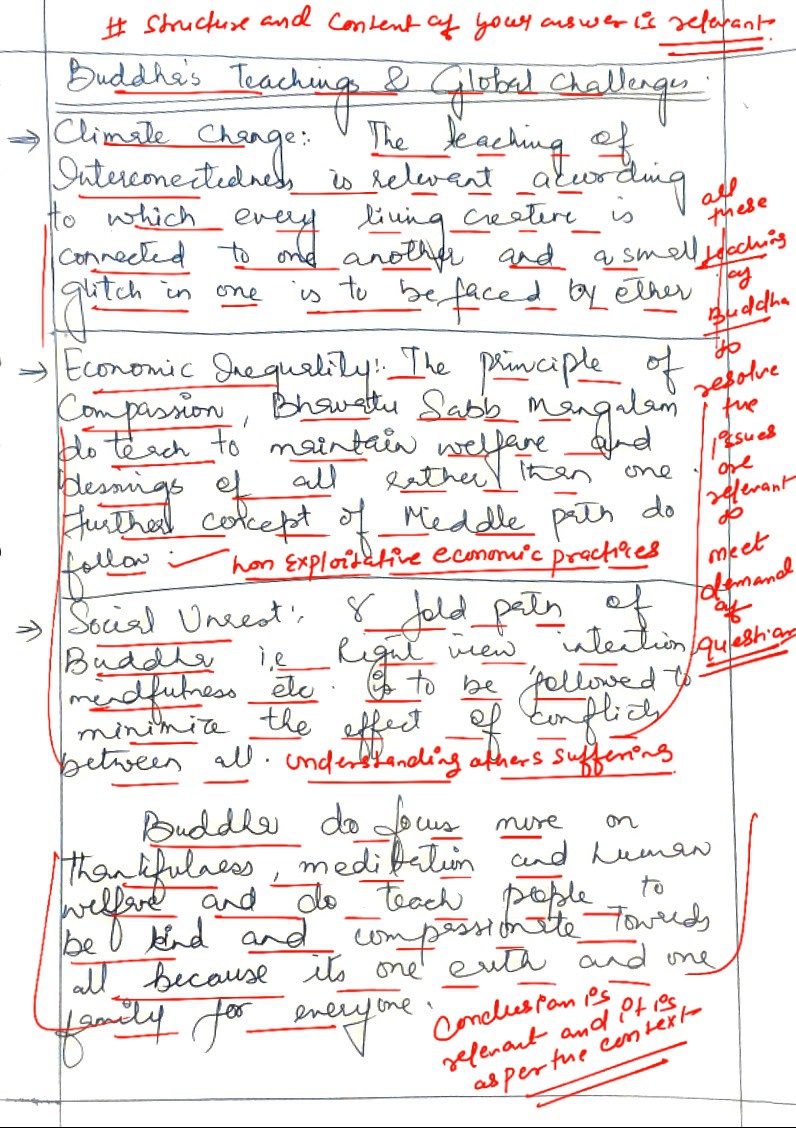 # Structure and content of your answer is relevant
Buddha's Teachings & Global Challenges.
→ Climate Change:. The teaching of
Interconectedness is relevant acording
to which every living creature is
connected to one another and a small
glitch in one is to be faced by other
all
these
teaching
of
Buddha
to
resolve
the
issues
are
relevant
to
meet
demand
of
question
→ Economic Inequality:. The principle of
Compassion, Bhavatu Sabb Mangalam
do teach to maintain welfare and
blessings of all rather then one.
further concept of Meddle path do
follow. non exploitative economic practices
→ Social Unrest:. 8 fold path of
Buddha i.e Right view, intention,
mindfulness etc. is to be followed to
minimize the effect of conflicts
between all. understanding others suffering
Buddha do focus more on
thankfulness, meditation and human
welfare and do teach people to
be kind and compassionate towards
all because its one erth and one
family for everyone.
Conclusion is
relevant and it is
as per the context